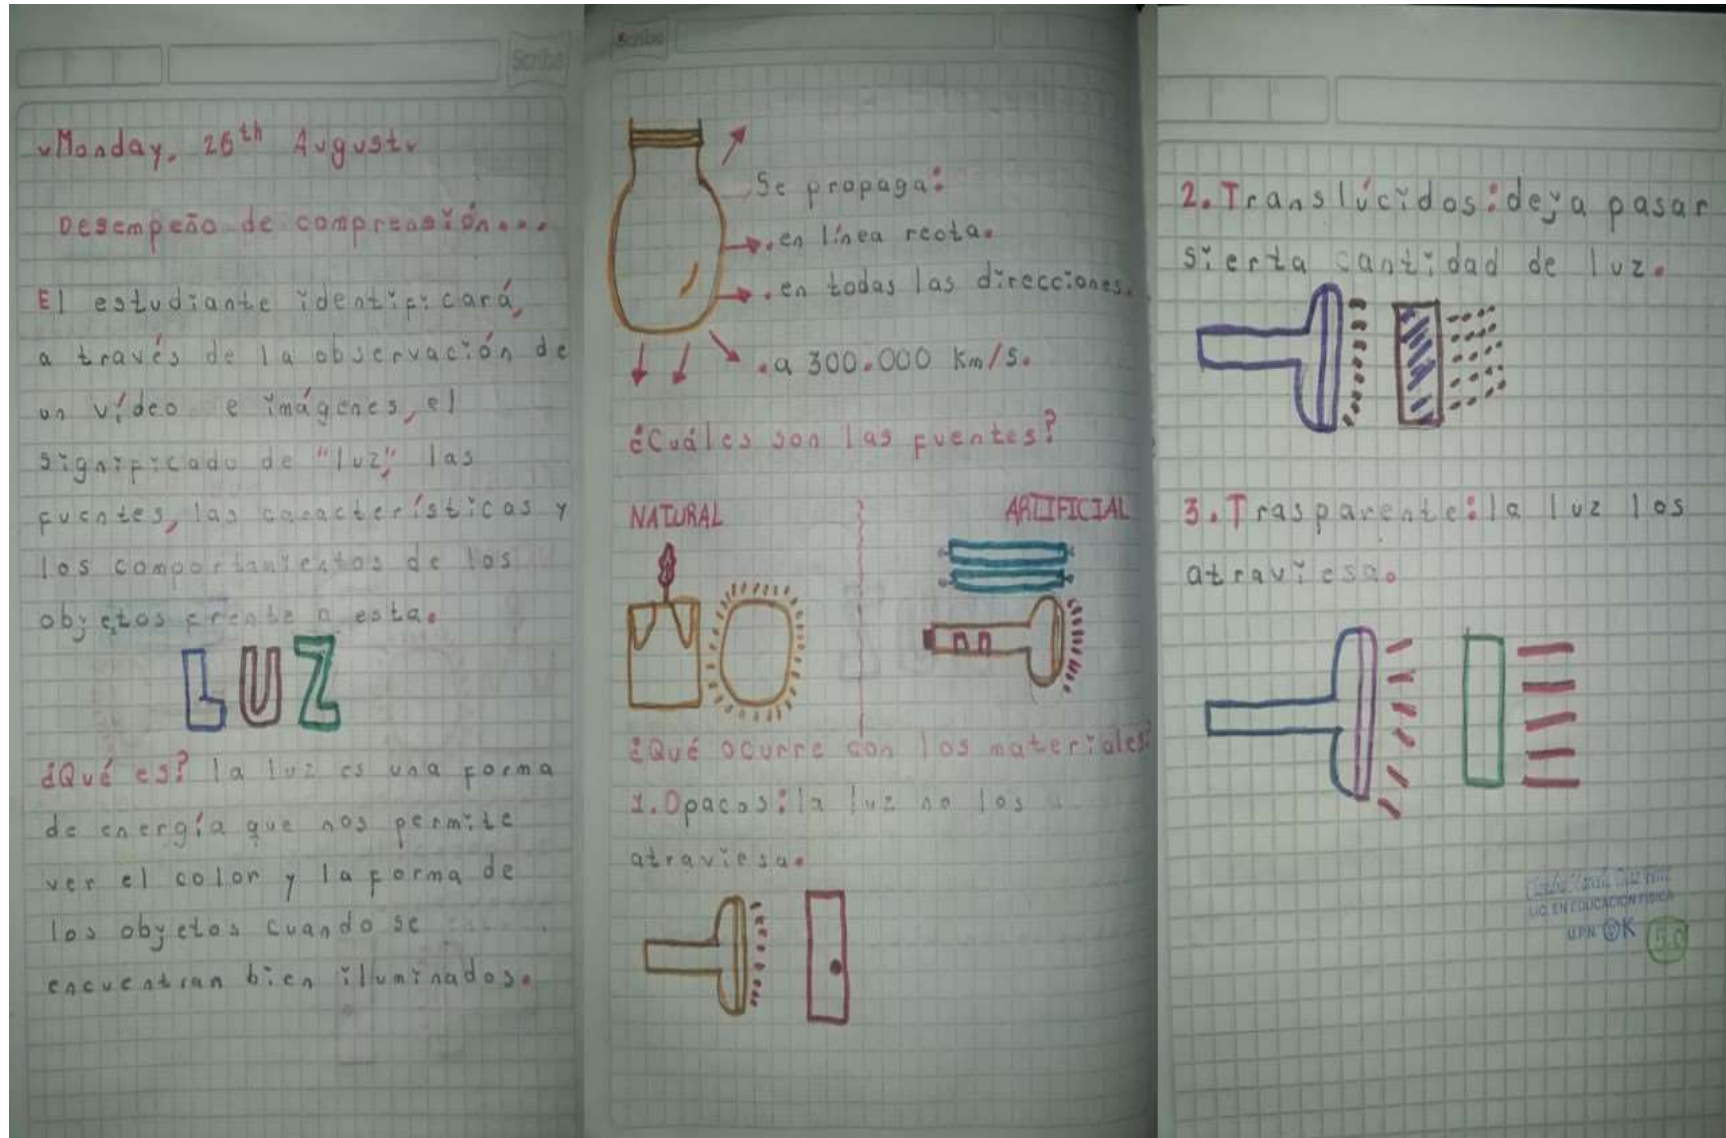 Scribe
Monday, 26th August
Desempeño de comprensión...
El estudiante identificará,
a través de la observación de
un vídeo e imágenes, el
significado de "luz", las
fuentes, las características y
los comportamientos de los
objetos frente a esta.
LUZ
¿Qué es? la luz es una forma
de energía que nos permite
ver el color y la forma de
los objetos cuando se
encuentran bien iluminados.
Scribe
Se propaga:
.en línea recta.
.en todas las direcciones.
.a 300.000 Km/s.
¿Cuáles son las fuentes?
NATURAL
ARTIFICIAL
¿Qué ocurre con los materiales?
1.Opacos:la luz no los
atraviesa.
2.Translúcidos:deja pasar
sierta cantidad de luz.
3.Trasparente:la luz los
atraviesa.
LIC. EN EDUCACION FISICA
U.P.N. OK
5.0